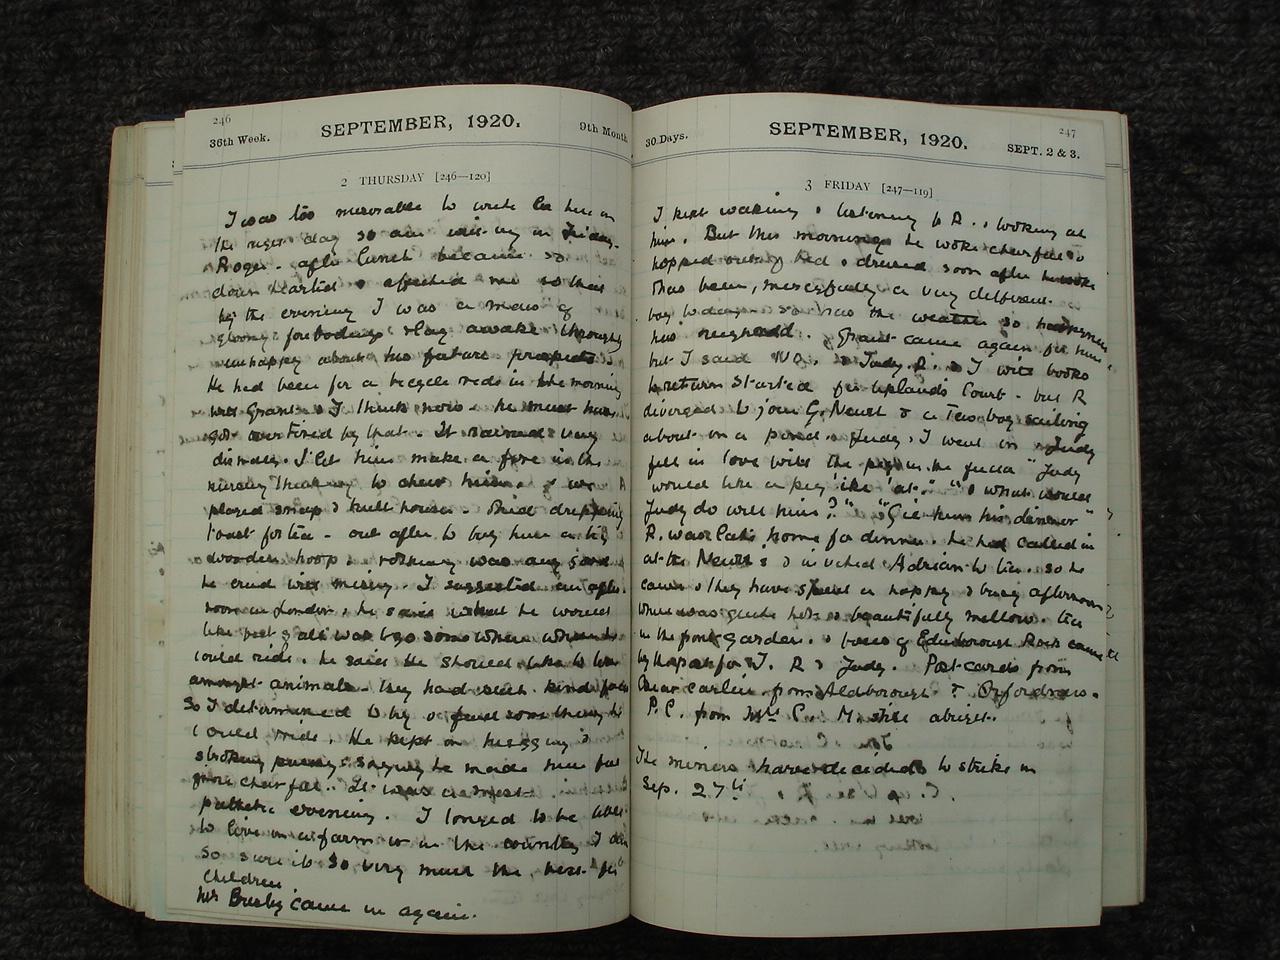 246
36th Week.
SEPTEMBER, 1920.
9th Month
2 THURSDAY [246—120]
I was too miserable to write in here on
the right day so am writing in Friday.
Roger after lunch became so
down hearted & affected me so that
by the evening I was a mass of
gloomy forbodings & lay awake thoroughly
unhappy about his future prospects.
He had been for a bicycle ride in the morning
with Grant & I think now he must have
got overtired by that. It rained very
dismally. I let him make a fire in the
nursery thinking to cheer him & we
played snap & built houses. Had dripping
toast for tea - out after to buy him a big
wooden hoop & nothing was any good
he cried with misery. I suggested an after-
noon in London, he said what he would
like best of all was to go somewhere where he
could ride. he said he should like to live
amongst animals they had such kind faces
So I determined to try & find something he
could ride. He kept on kissing &
stroking pussy & saying he made him feel
more cheerful. It was a most
pathetic evening. I longed to be able
to live on a farm or in the country I am
so sure it is so very much the best for
children.
Mr Busby came in again.
30 Days.
SEPTEMBER, 1920.
247
SEPT. 2 & 3.
3 FRIDAY [247—119]
I kept waking & listening to R. & looking at
him. But this morning he woke cheerful &
hopped out of bed & dressed soon after he woke
& has been, mercifully a very different
boy today - so was the weather so
has neuhadd. Grant came again for him
but I said NO. & Judy. R. & I with books
to return started for Uplands Court - but R
diverged to join G. Newt & a Tee boy sailing
about on a pond. Judy & I went on & Judy
fell in love with the pig in the field "Judy
would like a pig like 'at." "& what would
Judy do with him?" "Give him his dinner"
R. was late home for dinner. he had called in
at the Newts & invited Adrian to tea. so he
came & they have spent a happy & busy afternoon
which was quite hot & beautifully mellow. tea
in the front garden. & boxes of Edinborough Rock came
by post for J. R & Judy. Post cards from
earlier from Aldborough &
P.C. from still abright.
The miners have decided to strike on
Sep. 27th